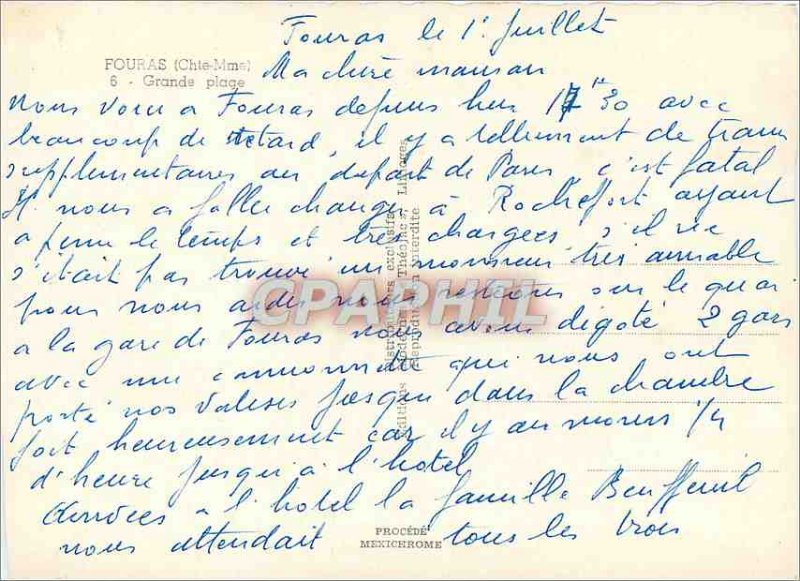 Fouras le 1er Juillet
FOURAS (Chte-Mme)
6 - Grande plage
Ma chère maman
Nous voici a Fouras depuis hier 17h 30 avec
beaucoup de retard, il y a tellement de trains
supplémentaires au départ de Paris, c'est fatal
Il nous a fallu changer à Rochefort ayant
a peine le temps et très chargées, s'il ne
s'était pas trouvé un monsieur très aimable
pour nous aider nous restions sur le quai
a la gare de Fouras nous avons dégoté 2 gars
avec une camionnette qui nous ont
porté nos valises jusque dans la chambre
fort heureusement car il y a au moins 1/4
d'heure jusqu'à l'hotel
Arrivées a l'hotel la famille
nous attendait tous les trois
PROCÉDÉ
MEXICHROME
distributeurs exclusifs
Éditions modernes "Théojac", Limoges
Reproduction interdite
CPAPHIL